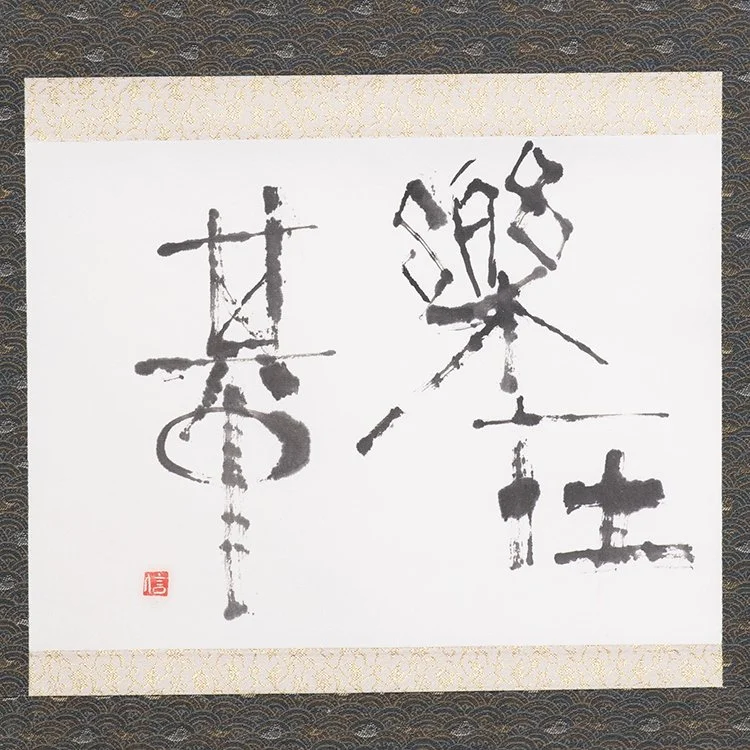 樂在
其中
信